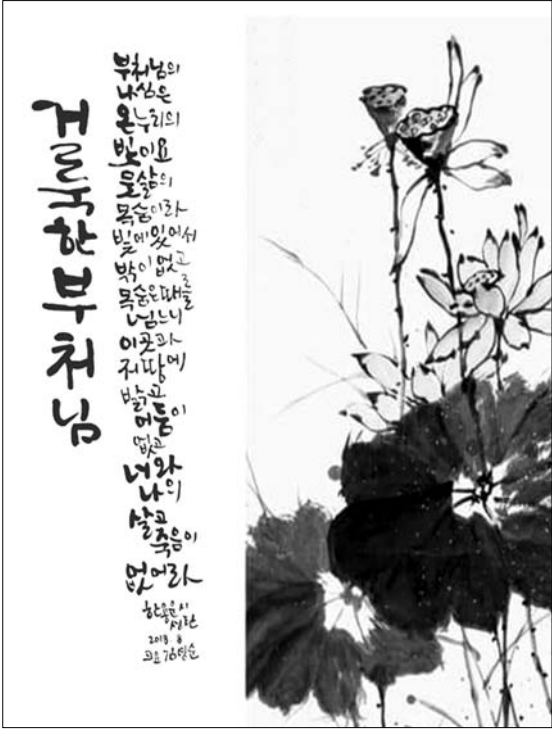 거룩한부처님
부처님의
나심은
온누리의
빛이요
뭇삶의
목숨이라
빛에있어서
밖이없고
목숨은때를
넘느니
이곳과
저땅에
밝고
어둠이
없고
너와
나의
살고
죽음이
없어라
한용운시
성탄
2018. 8